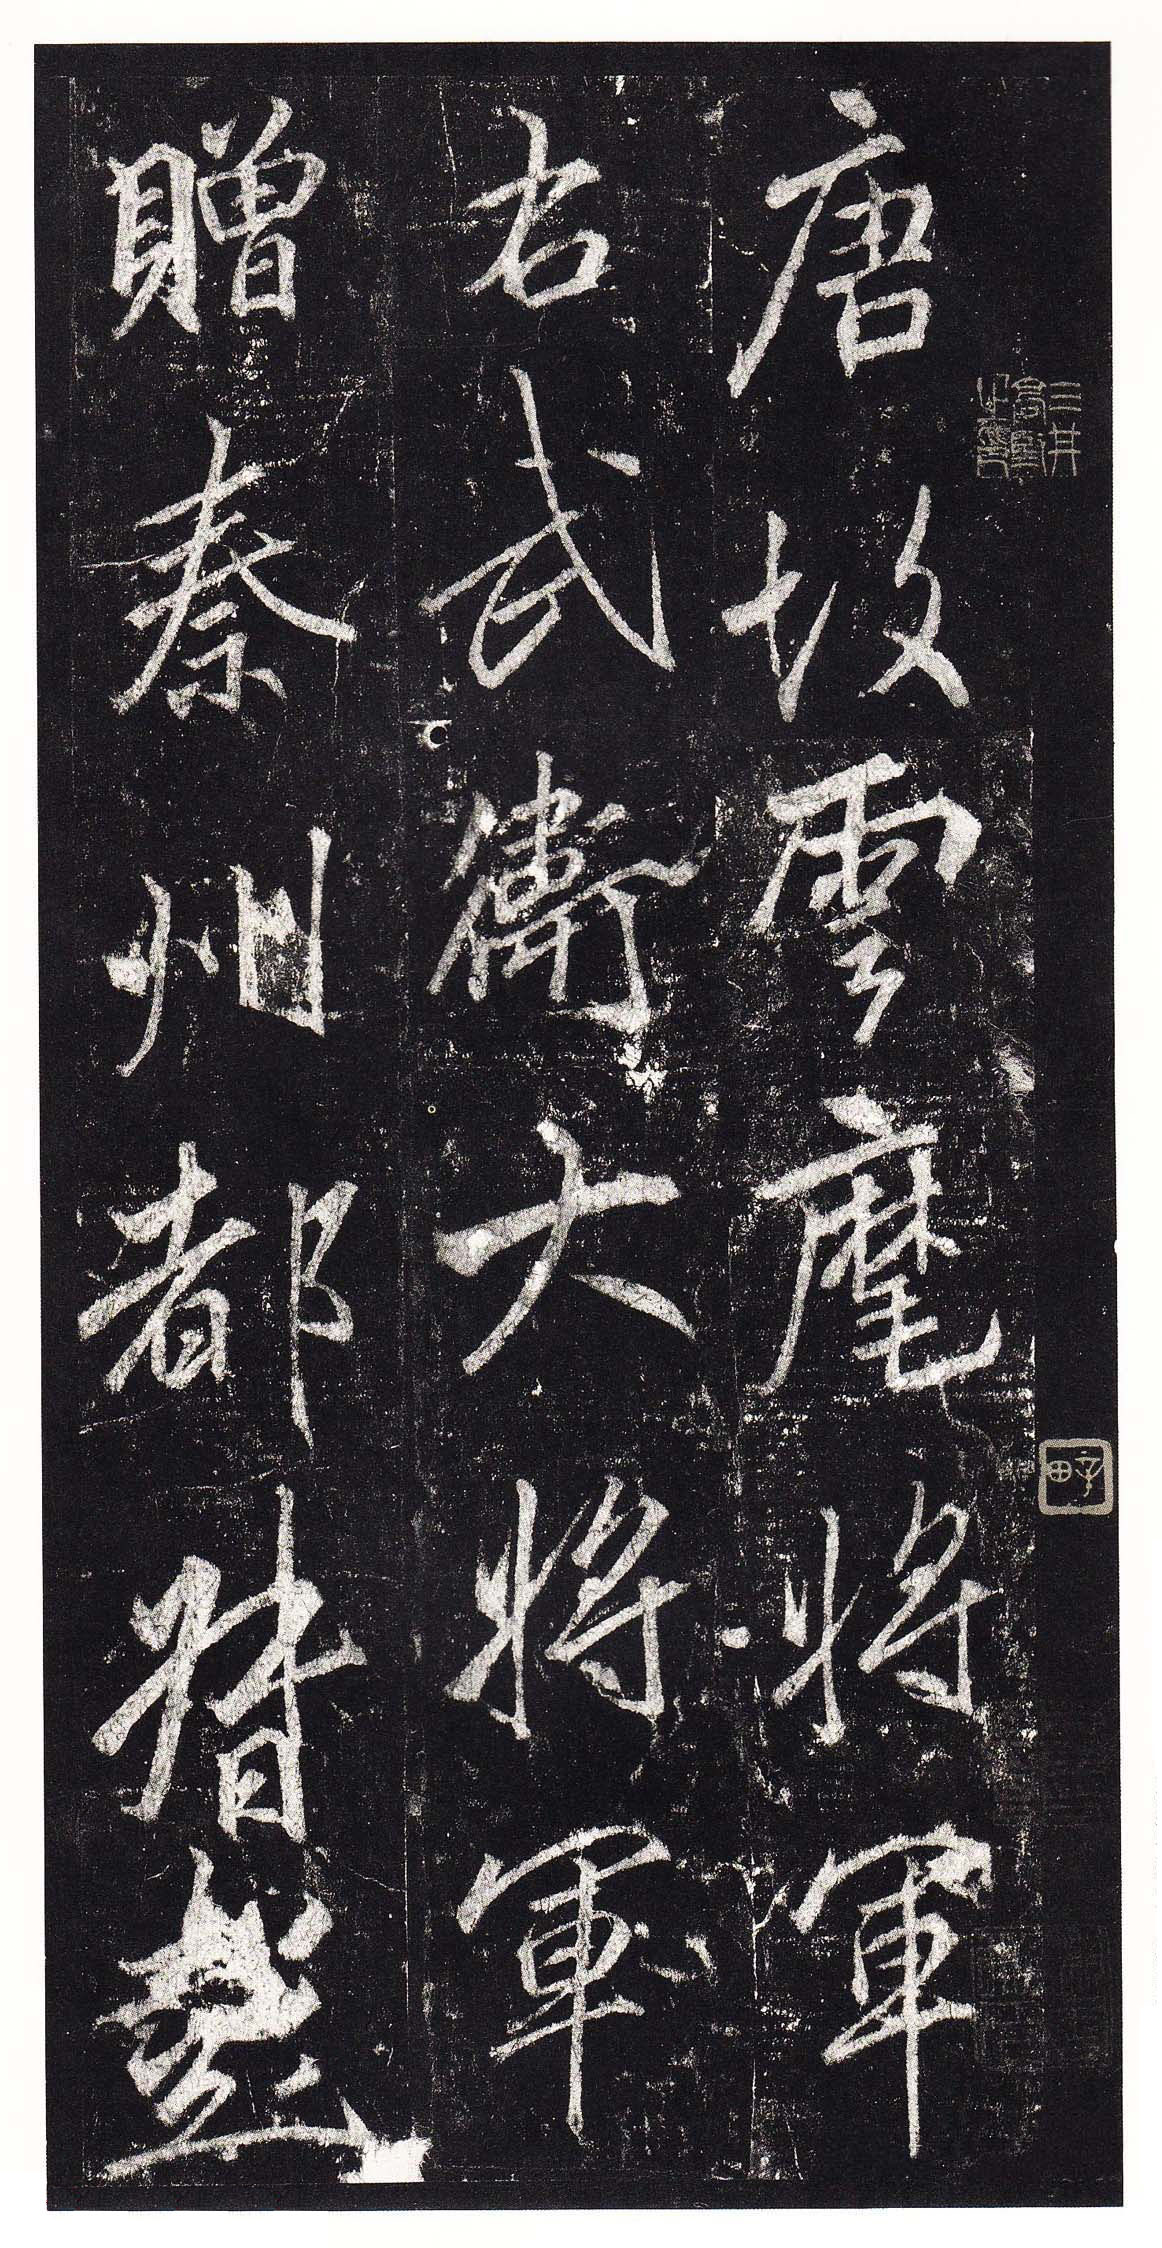 唐故雲麾將軍
右武衛大將軍
贈秦州都督彭
三井